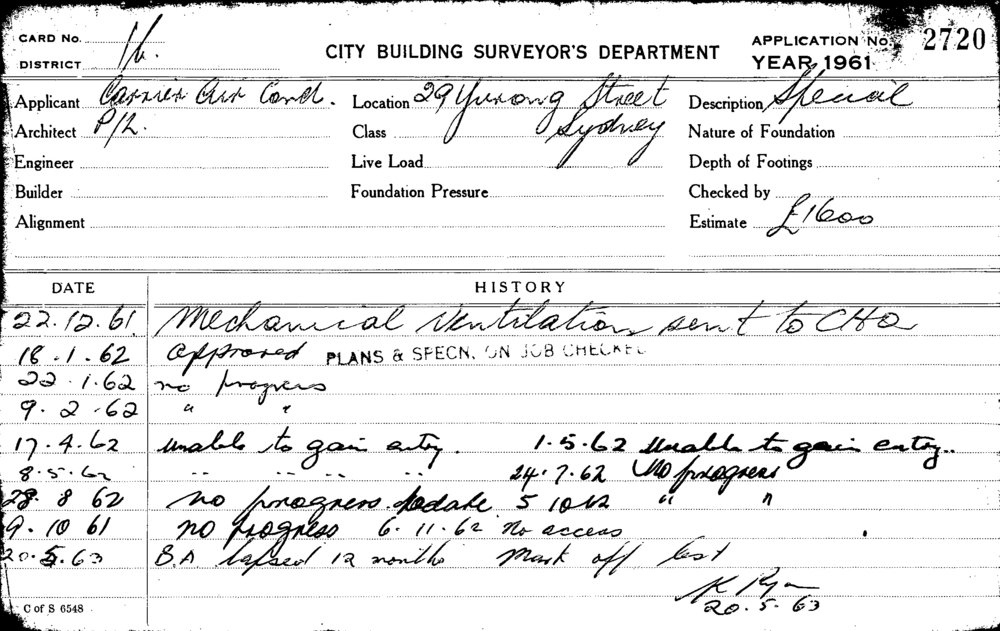 CARD No. 16. CITY BUILDING SURVEYOR'S DEPARTMENT APPLICATION No. 2720
DISTRICT YEAR, 1961
Applicant Carrier Air Cond. Location 29 Yurong Street Description Special
Architect P/L. Class Sydney Nature of Foundation
Engineer Live Load Depth of Footings
Builder Foundation Pressure Checked by
Alignment Estimate £1600
DATE HISTORY
22.12.61 Mechanical Ventilation sent to CHO
18.1.62 approved PLANS & SPECN. ON JOB CHECKED
22.1.62 no progress
9.2.62 " "
17.4.62 unable to gain entry. 1.5.62 Unable to gain entry..
8.5.62 .. .. .. .. 24.7.62 No progress
28.8 62 no progress todate 5 10 62 " "
9.10 61 no progress 6.11.62 No access
20.5.63 B.A. lapsed 12 months Mark off last
K Ryan
20.5.63
C of S 6548